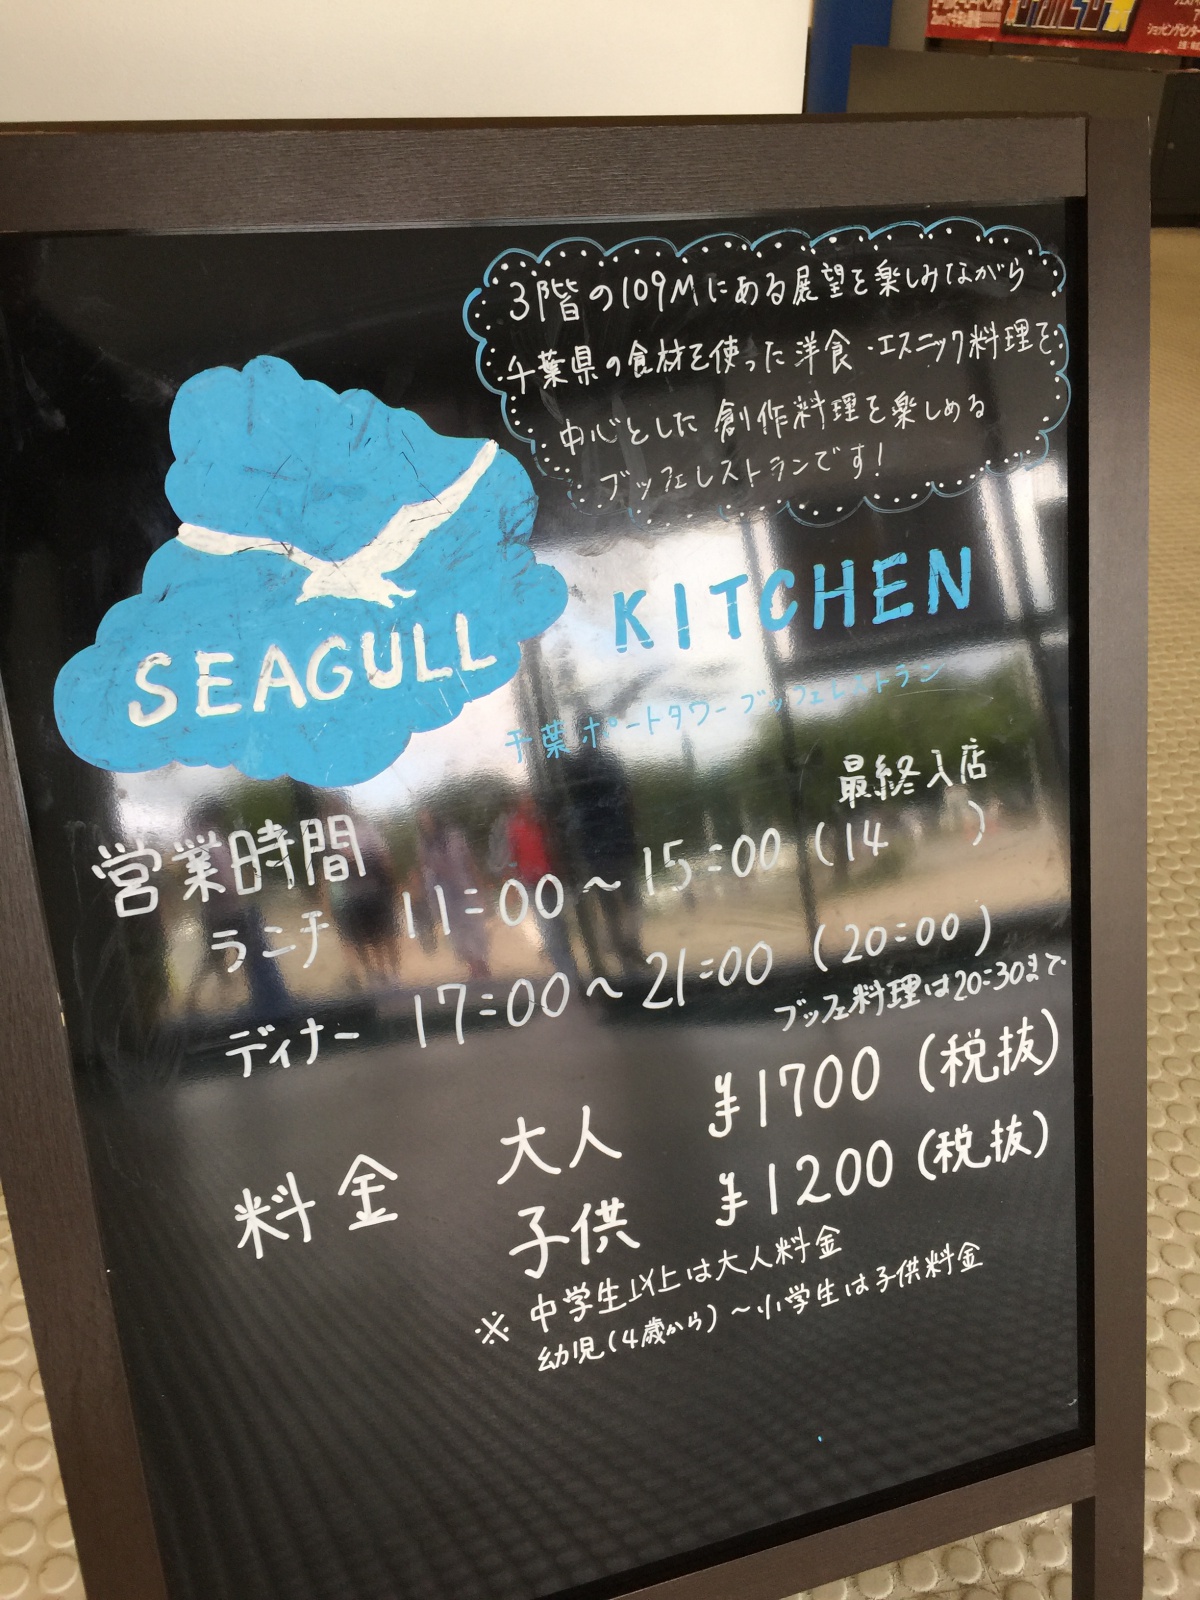 3階の109Mにある展望を楽しみながら
千葉県の食材を使った洋食・エスニック料理を
中心とした創作料理を楽しめる
ブッフェレストランです!
SEAGULL KITCHEN
千葉ポートタワーブッフェレストラン
営業時間
最終入店
ランチ 11:00～15:00 (14 )
ディナー 17:00～21:00 (20:00)
ブッフェ料理は20:30まで
料金 大人 ¥1700 (税抜)
子供 ¥1200 (税抜)
※ 中学生以上は大人料金
幼児(4歳から)～小学生は子供料金
ショッピングセンター